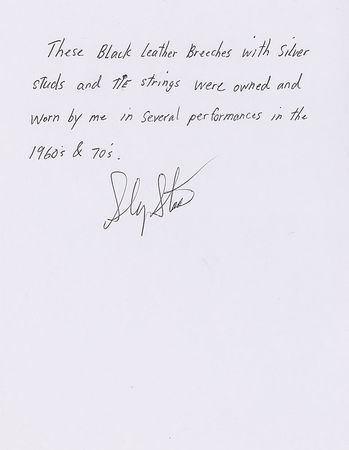 These Black Leather Breeches with Silver
studs and TIE strings were owned and
worn by me in several performances in the
1960's & 70's.
Sly Stone